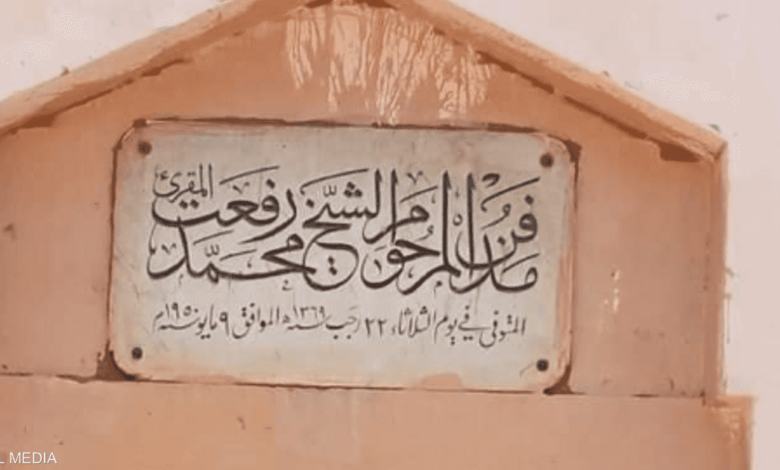 مدفن المرحوم الشيخ محمد رفعت المقرئ
المتوفى في يوم الثلاثاء ٢٢ رجب سنة ١٣٦٩ھ الموافق ٩ مايو سنة ١٩٥٠م
L MEDIA